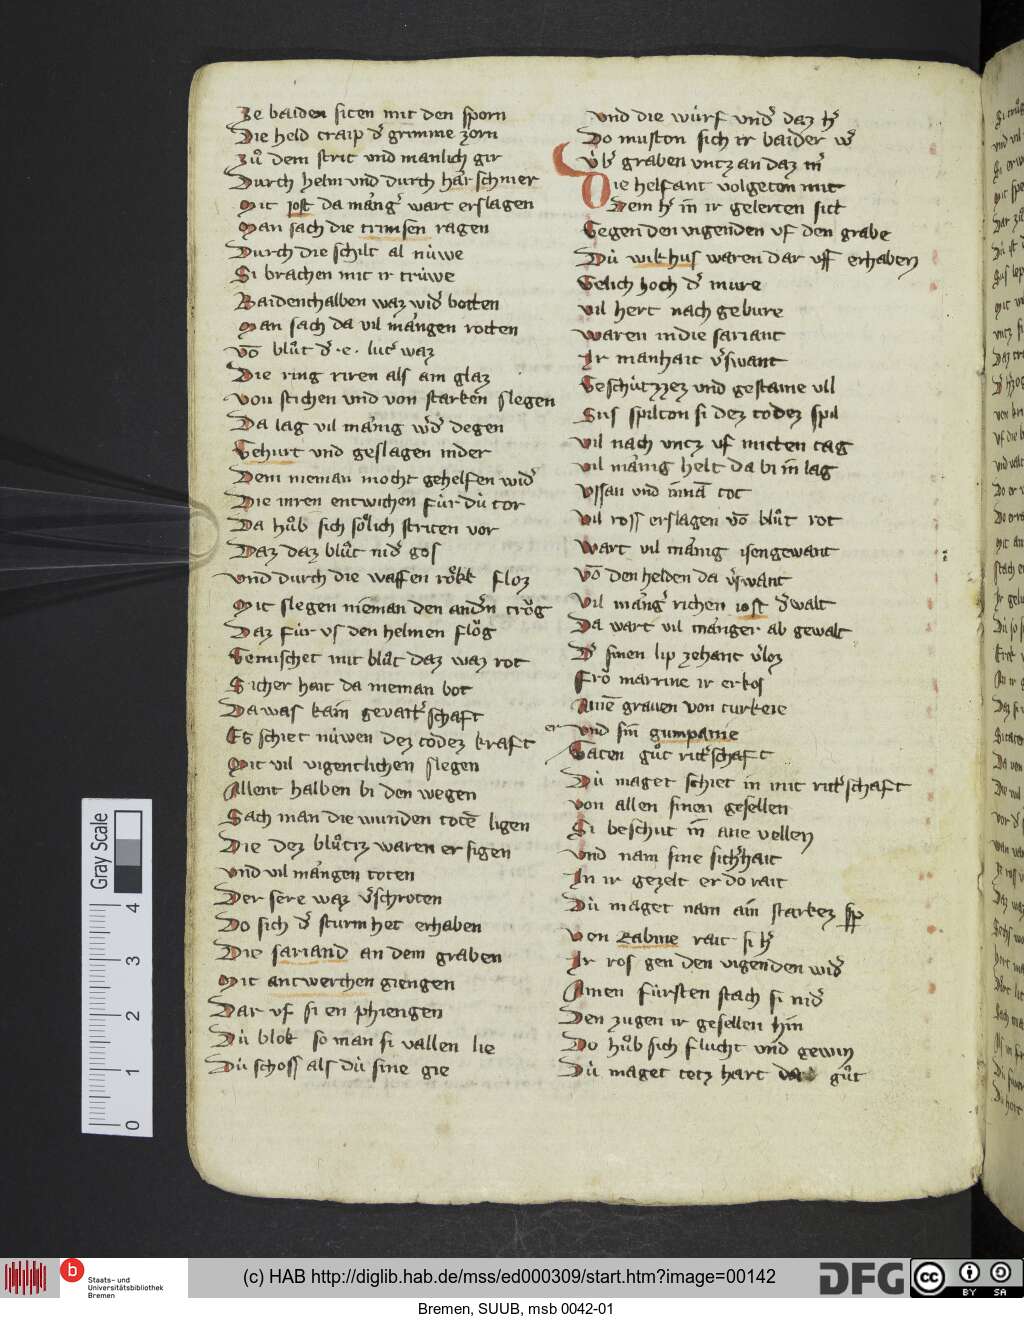 Ze baiden siten mit den sporn
Die held traip d̕ grimme zorn
Zů dem strit vnd manlich gir
Durch helm vnd durch har̕schnier
Mit jost da mang̕ wart erslagen
Man sach die trunsen ragen
Durch die schilt al nüwe
Si brachen mit ir trüwe
Baidenthalben waz wid̕ botten
Man sach da vil mangen rotten
võ blůt d̕ ·e· lut̕ waz
Die ring riren als am glaz
von stichen vnd von starken slegen
Da lag vil manig w̕d̕ degen
Gehurt vnd geslagen nider
Dem nieman mocht gehelfen wid̕
Die inren entwichen für dü tor
Da hůb sich sölich striten vor
Daz daz blůt nid̕ gos
vnd durch die waffen rökk floz
Mit slegen nieman den and̕n trög
Daz für vs den helmen flög
Gemischet mit blůt daz waz rot
Sicher hait da nieman bot
Da was kain gevatt̕schaft
Es schiet nüwen dez todez kraft
Mit vil vigentlichen slegen
Allent halben bi den wegen
Sach man die wunden totē ligen
Die dez blůtz waren ersigen
vnd vil mangen toten
Der sere waz v̕schroten
Do sich d̕ sturm het erhaben
Die sariand an dem graben
Mit antwerchen giengen
Dar vf si en phiengen
Dü blok so man si vallen lie
Dü schoss als dü sine gie
vnd die würf vnd̕ daz h̕
Do muston sich ir baider w̕
Vb̕ graben vntz an daz m̕
Die helfant volgeton mit
Dem h̕ in ir gelerten sitt
Gegen den vigenden vf den grabe
Dü wikhus waren dar vff erhaben
Gelich hoch d̕ mure
vil hert nach gebure
waren in die sariant
Ir manhait v̕swant
Geschützzez vnd gestaine vil
Sus spilton si dez todez spil
vil nach vntz vf mitten tag
vil manig helt da bi in lag
Vssan vnd innā tot
Vil ross erslagen võ blůt rot
Wart vil manig isengewant
Võ den helden da v̕swant
Vil mang̕ richen jost d̕walt
Da wart vil manger ab gewalt
D̕ sinen lip zehant v̕loz
Frõ marrine ir erkos
Ainē grauen von turkeie
er vnd sin gumpanie
Taten gůt ritt̕schaft
Dü maget schiet in mit ritt̕schaft
von allen sinen gesellen
Si beschut in ane vellen
Vnd nam sine sich̕hait
In ir gezelt er do rait
Dü maget nam ain starkez sp̕
Von Rabine rait si h̕
Ir ros gen den vigenden wid̕
Ainen fürsten stach si nid̕
Den zugen ir gesellen hin
Do hůb sich flucht vnd gewin
Dü maget tetz hart gůt
Gray Scale
4
3
2
1
0
b
Staats- und
Universitätsbibliothek
Bremen
(c) HAB http://diglib.hab.de/mss/ed000309/start.htm?image=00142
DFG
cc
BY SA
Bremen, SUUB, msb 0042-01